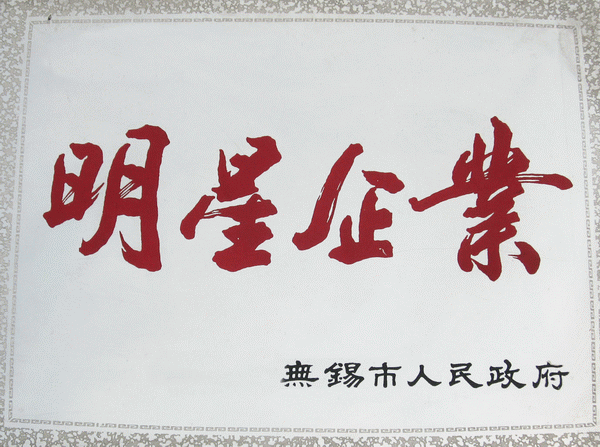 明星企業
無錫市人民政府